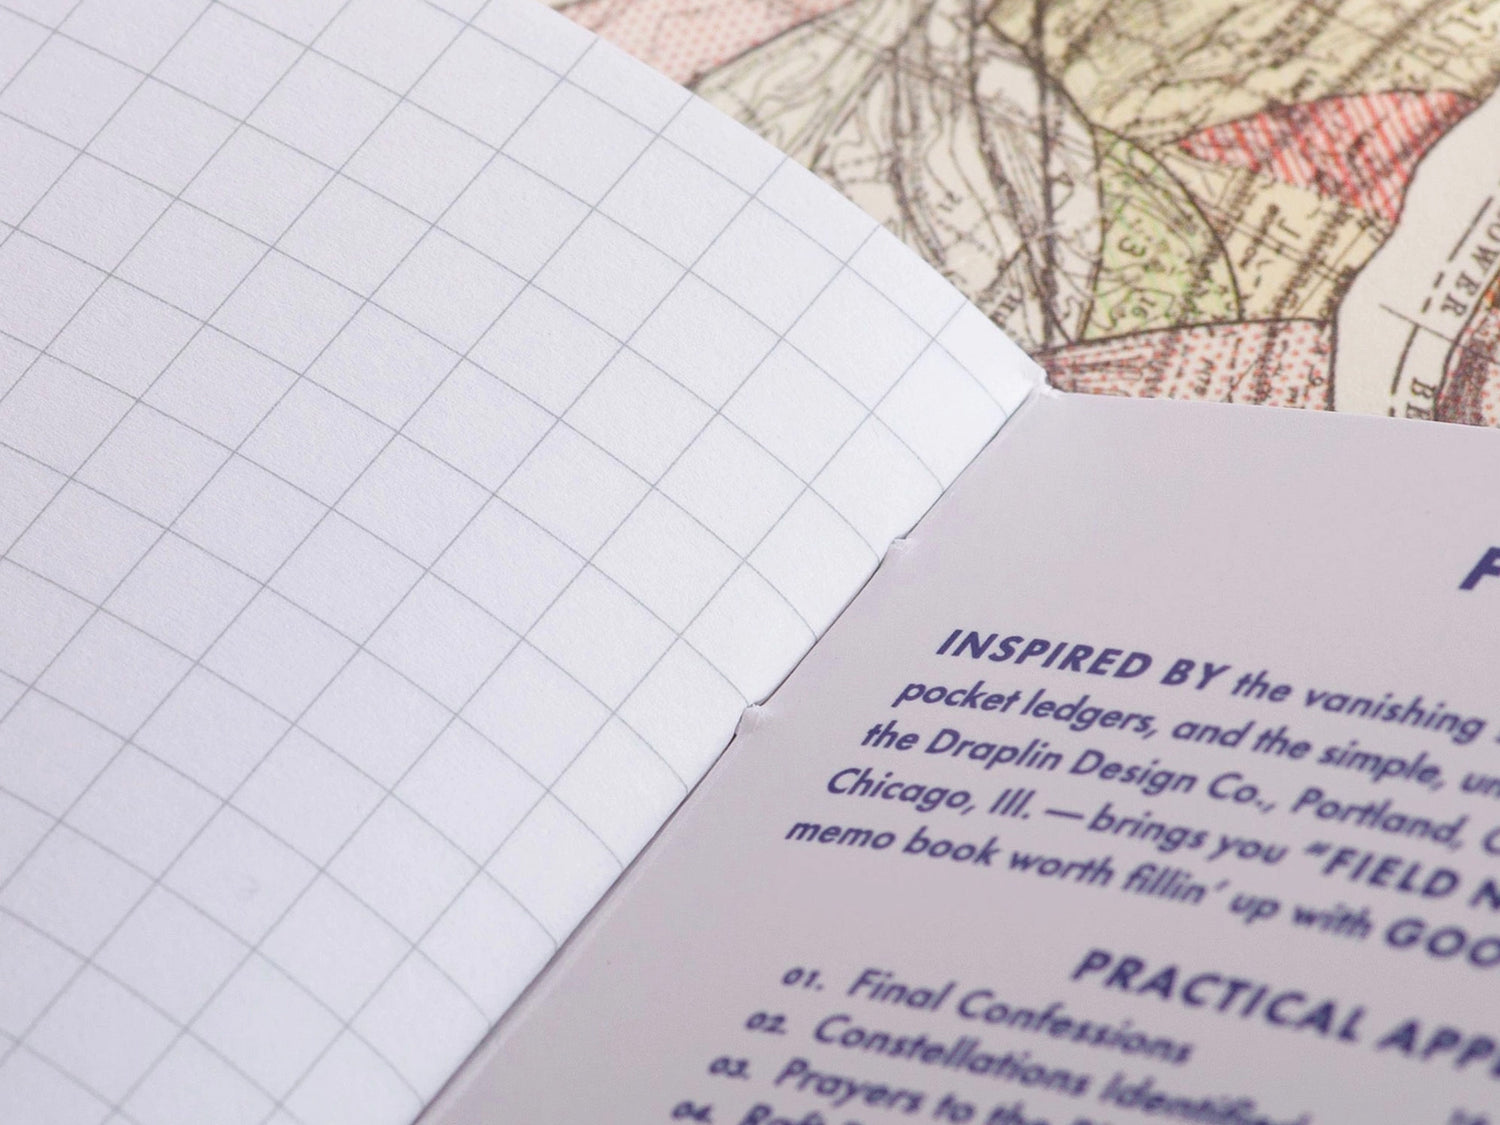 F
INSPIRED BY the vanishing
pocket ledgers, and the simple, un
the Draplin Design Co., Portland, O
Chicago, Ill. — brings you “FIELD N
memo book worth fillin’ up with GOO
PRACTICAL APPL
01. Final Confessions
02. Constellations Identified
03. Prayers to the
04.
OWER
BE